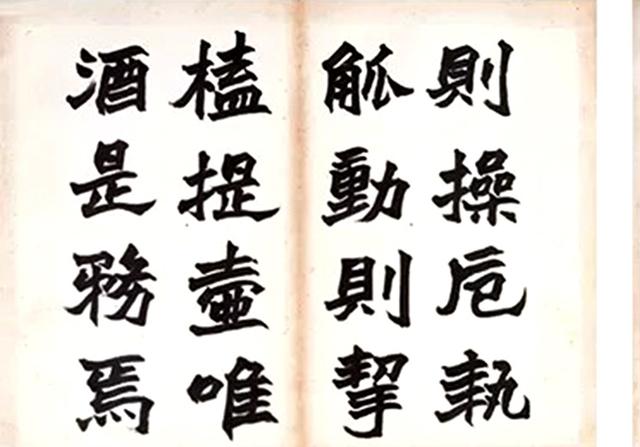 則操卮執
觚動則挈
榼提壺唯
酒是務焉